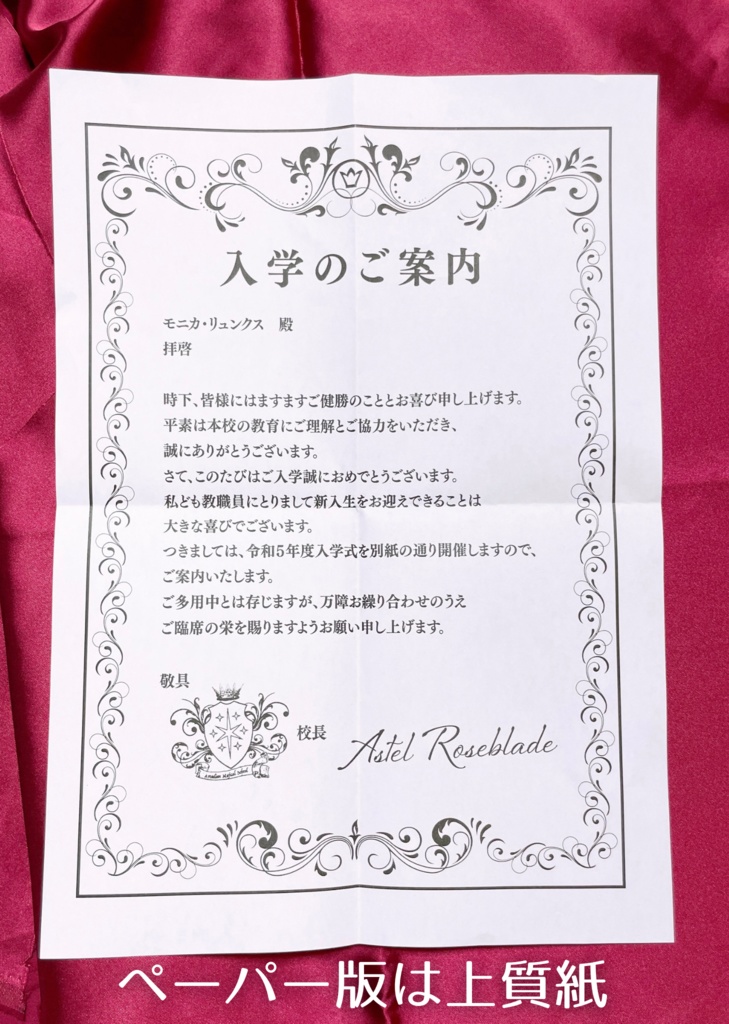 入学のご案内
モニカ・リュンクス　殿
拝啓
時下、皆様にはますますご健勝のこととお喜び申し上げます。
平素は本校の教育にご理解とご協力をいただき、
誠にありがとうございます。
さて、このたびはご入学誠におめでとうございます。
私ども教職員にとりまして新入生をお迎えできることは
大きな喜びでございます。
つきましては、令和5年度入学式を別紙の通り開催しますので、
ご案内いたします。
ご多用中とは存じますが、万障お繰り合わせのうえ
ご臨席の栄を賜りますようお願い申し上げます。
敬具
校長
Astel Roseblade
ペーパー版は上質紙